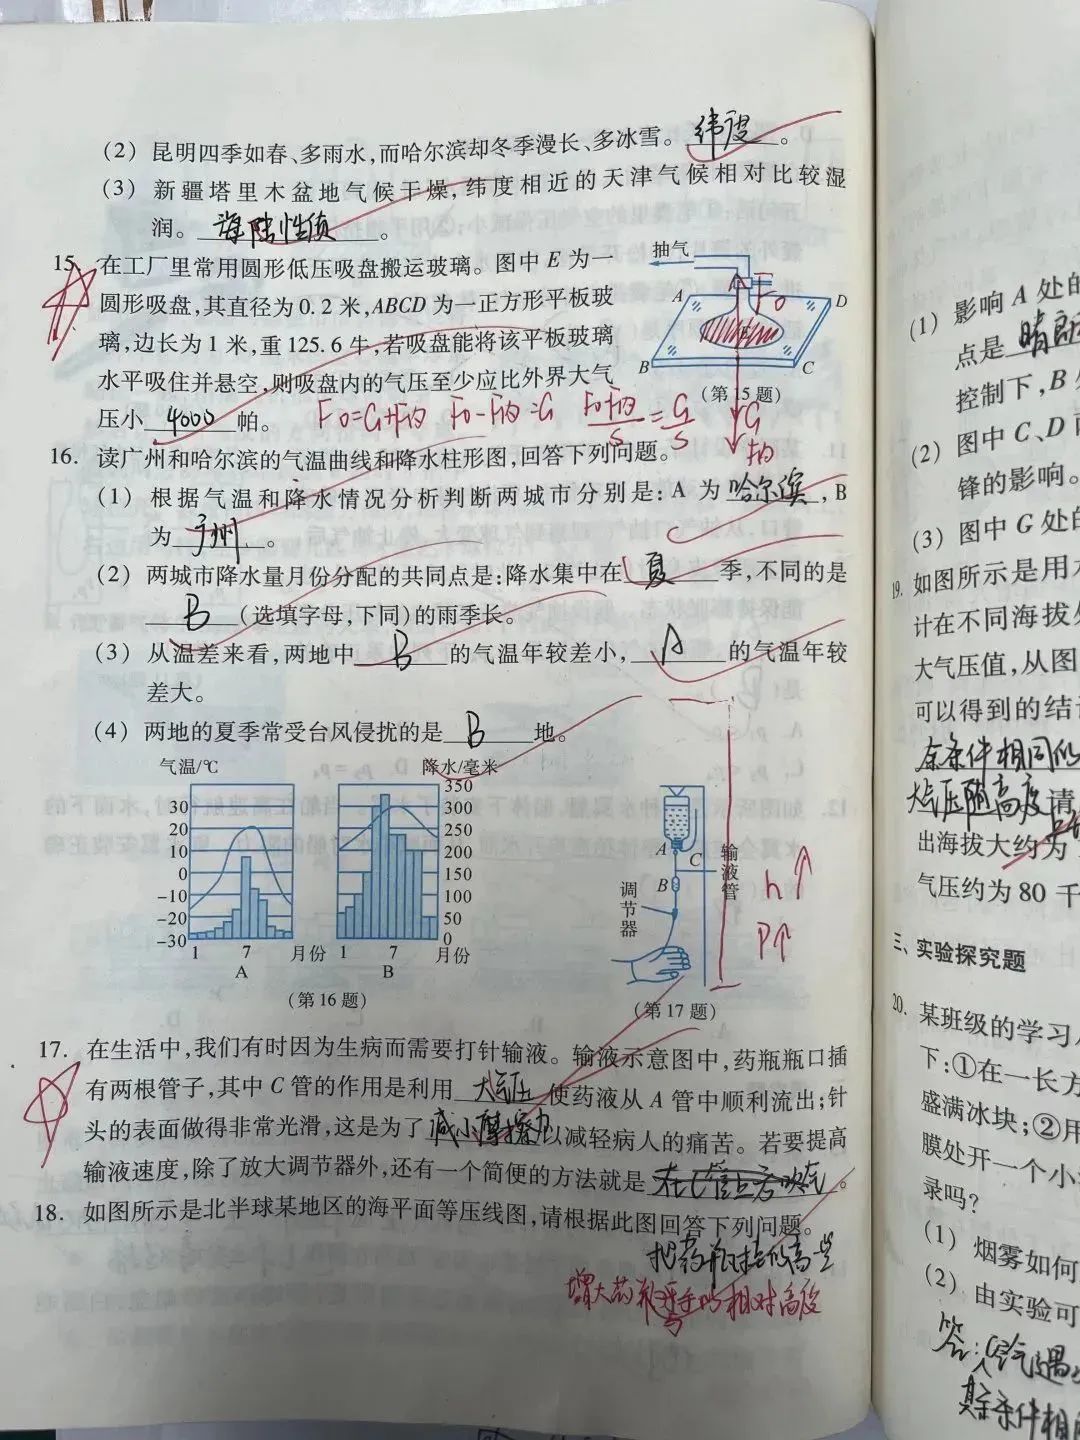 (2) 昆明四季如春、多雨水,而哈尔滨却冬季漫长、多冰雪。纬度。
(3) 新疆塔里木盆地气候干燥,纬度相近的天津气候相对比较湿
润。海陆性质。
15. 在工厂里常用圆形低压吸盘搬运玻璃。图中E为一
圆形吸盘,其直径为0.2米,ABCD为一正方形平板玻
璃,边长为1米,重125.6牛,若吸盘能将该平板玻璃
水平吸住并悬空,则吸盘内的气压至少应比外界大气
压小 4000 帕。
抽气
A
D
B
C
E
F0
(第15题)
G
F内
F0=G+F内 F0-F内=G F0-F内/S=G/S
16. 读广州和哈尔滨的气温曲线和降水柱形图,回答下列问题。
(1) 根据气温和降水情况分析判断两城市分别是:A为哈尔滨,B
为广州。
(2) 两城市降水量月份分配的共同点是:降水集中在夏季,不同的是
B(选填字母,下同)的雨季长。
(3) 从温差来看,两地中B的气温年较差小,A的气温年较
差大。
(4) 两地的夏季常受台风侵扰的是B地。
气温/℃
降水/毫米
30
20
10
0
-10
-20
-30
350
300
250
200
150
100
50
0
1 7 月份 1 7 月份
A B
(第16题)
A
C
B
调节器
输液管
h↑
P↑
(第17题)
17. 在生活中,我们有时因为生病而需要打针输液。输液示意图中,药瓶瓶口插
有两根管子,其中C管的作用是利用大气压使药液从A管中顺利流出;针
头的表面做得非常光滑,这是为了减小摩擦力以减轻病人的痛苦。若要提高
输液速度,除了放大调节器外,还有一个简便的方法就是。
把药瓶挂的高些
增大药瓶与手的相对高度
18. 如图所示是北半球某地区的海平面等压线图,请根据此图回答下列问题。
(1) 影响A处的
点是晴朗
控制下,B
(2) 图中C、D
锋的影响。
(3) 图中G处的
19. 如图所示是用
计在不同海拔
大气压值,从图
可以得到的结
余条件相同
大气压随高度
请
出海拔大约为
气压约为80千
三、实验探究题
20. 某班级的学习
下:①在一长方
盛满冰块;②用
膜处开一个小
录吗?
(1) 烟雾如何
(2) 由实验可
答:空气遇
其余条件相同